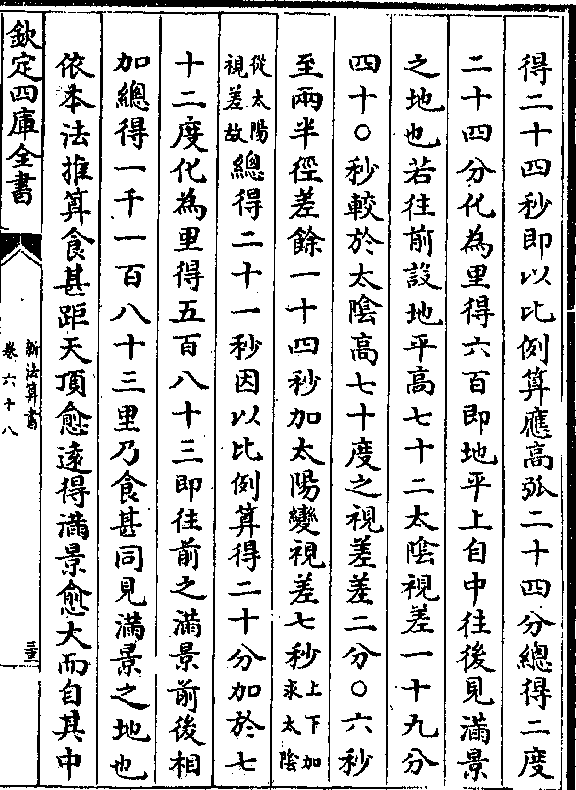 得二十四秒即以比例算應高弧二十四分總得二度
二十四分化為里得六百即地平上自中往後見滿景
之地也若往前設地平高七十二太陰視差一十九分
四十〇秒較於太陰高七十度之視差差二分〇六秒
至兩半徑差餘一十四秒加太陽變視差七秒上下加求太陰
從太陽視差故總得二十一秒因以比例算得二十分加於七
十二度化為里得五百八十三即往前之滿景前後相
加總得一千一百八十三里乃食甚同見滿景之地也
依本法推算食甚距天頂愈遠得滿景愈大而自其中
欽定四庫全書
新法算書
卷六十八
三